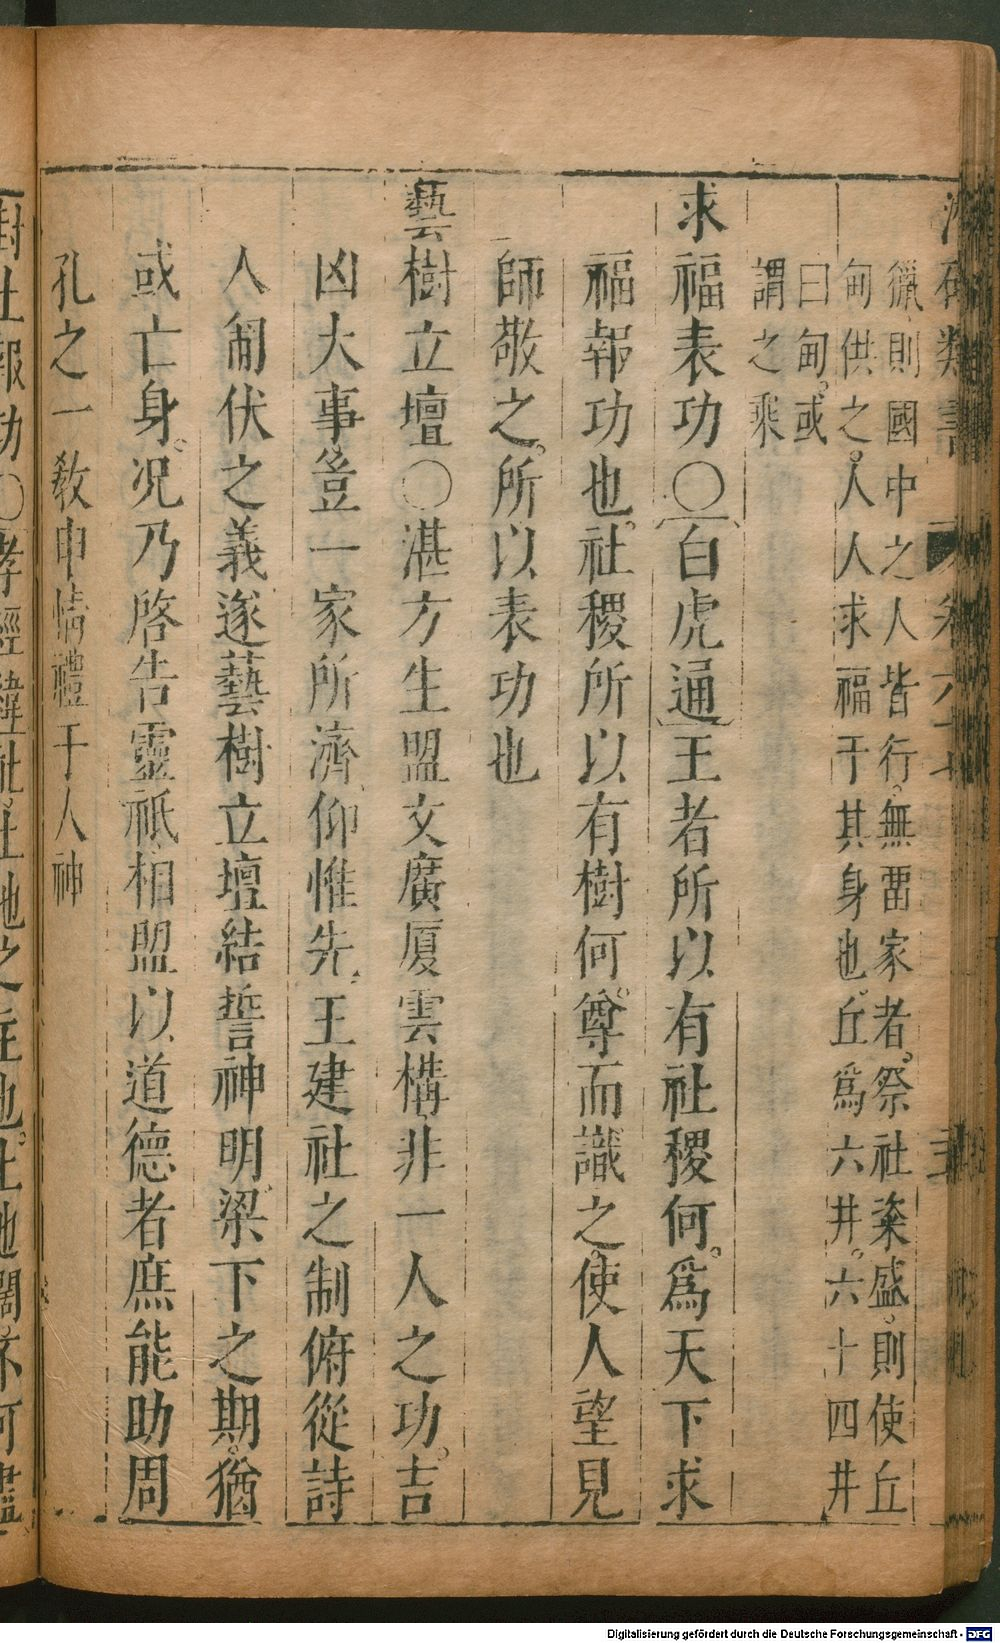 獵則國中之人皆行。無畱家者。祭社粢盛。則使丘
甸供之。人人求福于其身也。丘爲六井。六十四井
曰甸。或
謂之乘
求福表功〇白虎通王者所以有社稷何。爲天下求
福報功也。社稷所以有樹何。尊而識之。使人望見
師敬之。所以表功也
藝樹立壇〇湛方生盟文廣厦雲構非一人之功。吉
凶大事豈一家所濟仰惟先王建社之制俯從詩
人匍伏之義遂藝樹立壇結誓神明梁下之期。猶
或亡身。况乃啓告靈祇相盟以道德者庶能助周
孔之一敎申情禮于人神
封社報功〇孝經緯社。土地之主也。土地闊不可盡
Digitalisierung gefördert durch die Deutsche Forschungsgemeinschaft - DFG